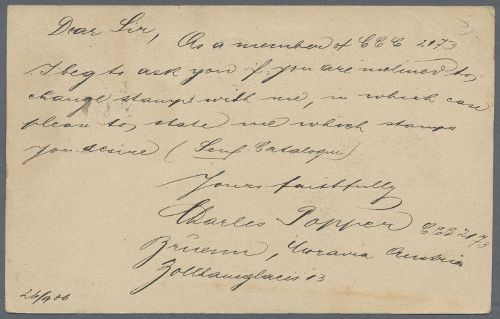 Dear Sir, As a member of CCC 2073
I beg to ask you if you are inclined to
change stamps with me, in which case
please to state me which stamps
you desire (Senf Catalogue)
Yours faithfully
Charles Popper CCC 2073
Bruenn, Moravia Austria
13
26/9 06